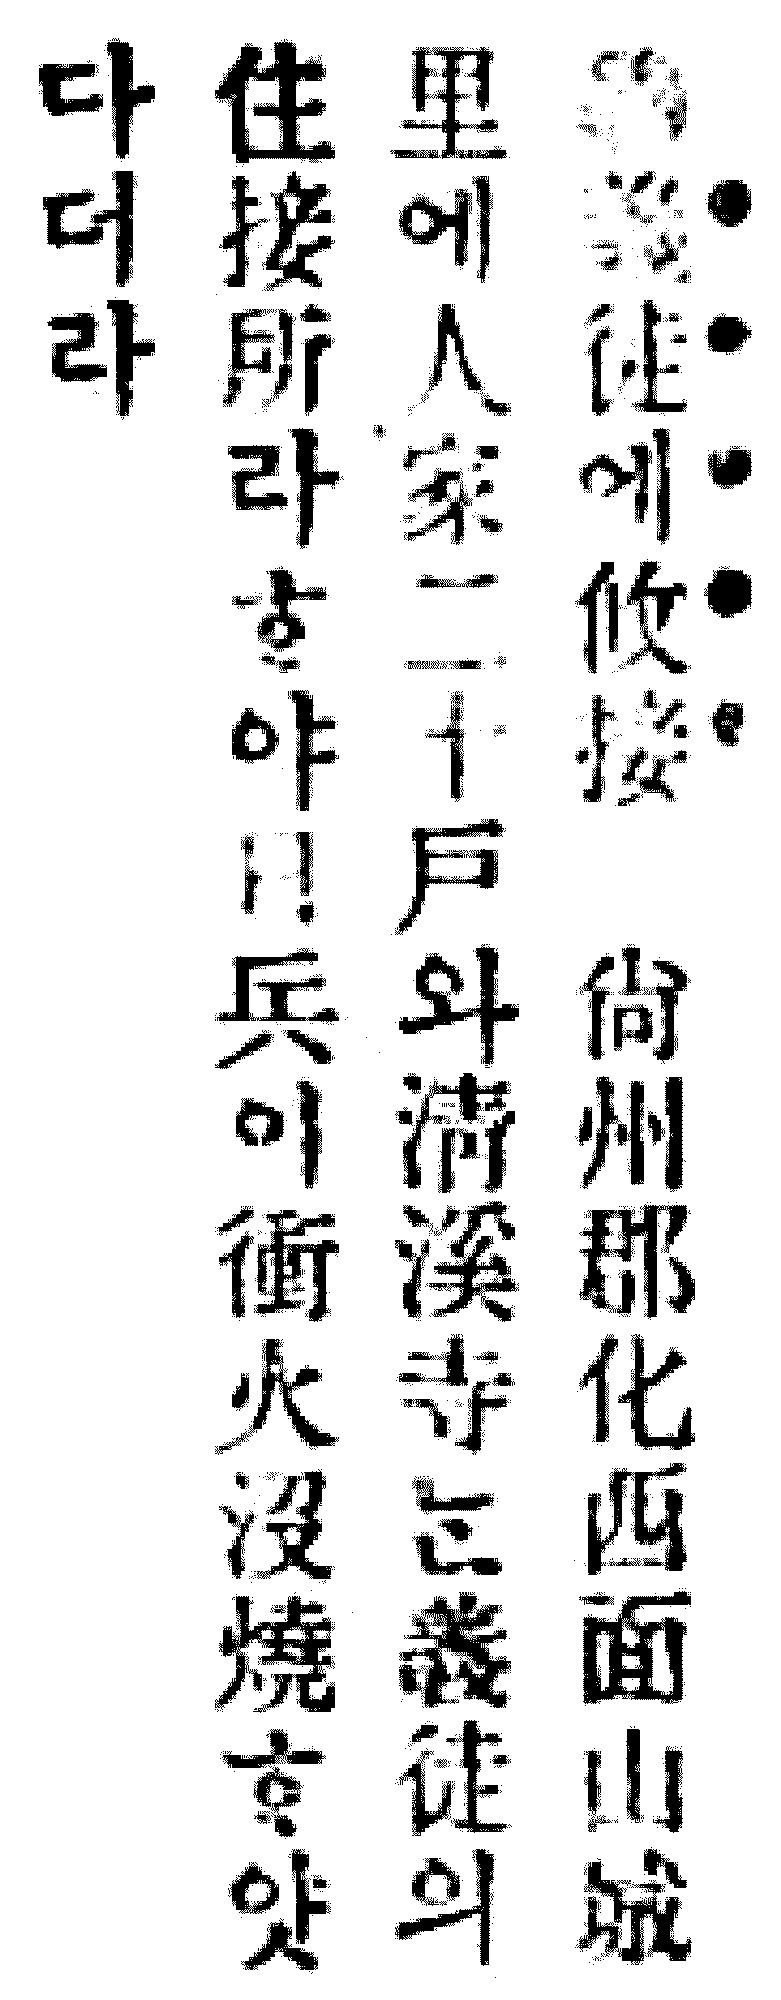 ○義徒에攸接　尙州郡化西面山城
里에人家二十戶와淸溪寺는義徒의
住接所라ᄒᆞ야日兵이衝火沒燒ᄒᆞ얏
다더라